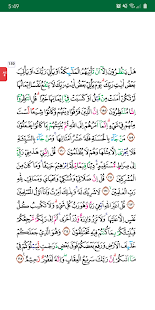 5:49
150
هَلْ يَنظُرُونَ إِلَّا أَن تَأْتِيَهُمُ الْمَلَائِكَةُ أَوْ يَأْتِيَ رَبُّكَ أَوْ يَأْتِيَ
بَعْضُ آيَاتِ رَبِّكَ يَوْمَ يَأْتِي بَعْضُ آيَاتِ رَبِّكَ لَا يَنفَعُ نَفْسًا إِيمَانُهَا
لَمْ تَكُنْ آمَنَتْ مِن قَبْلُ أَوْ كَسَبَتْ فِي إِيمَانِهَا خَيْرًا قُلِ انتَظِرُوا
إِنَّا مُنتَظِرُونَ إِنَّ الَّذِينَ فَرَّقُوا دِينَهُمْ وَكَانُوا شِيَعًا لَّسْتَ
مِنْهُمْ فِي شَيْءٍ إِنَّمَا أَمْرُهُمْ إِلَى اللَّهِ ثُمَّ يُنَبِّئُهُم بِمَا كَانُوا يَفْعَلُونَ
مَن جَاءَ بِالْحَسَنَةِ فَلَهُ عَشْرُ أَمْثَالِهَا وَمَن جَاءَ بِالسَّيِّئَةِ
فَلَا يُجْزَىٰ إِلَّا مِثْلَهَا وَهُمْ لَا يُظْلَمُونَ قُلْ إِنَّنِي هَدَانِي رَبِّي
إِلَىٰ صِرَاطٍ مُّسْتَقِيمٍ دِينًا قِيَمًا مِّلَّةَ إِبْرَاهِيمَ حَنِيفًا وَمَا كَانَ مِنَ
الْمُشْرِكِينَ قُلْ إِنَّ صَلَاتِي وَنُسُكِي وَمَحْيَايَ وَمَمَاتِي لِلَّهِ رَبِّ
الْعَالَمِينَ لَا شَرِيكَ لَهُ وَبِذَٰلِكَ أُمِرْتُ وَأَنَا أَوَّلُ الْمُسْلِمِينَ
قُلْ أَغَيْرَ اللَّهِ أَبْغِي رَبًّا وَهُوَ رَبُّ كُلِّ شَيْءٍ وَلَا تَكْسِبُ كُلُّ
نَفْسٍ إِلَّا عَلَيْهَا وَلَا تَزِرُ وَازِرَةٌ وِزْرَ أُخْرَىٰ ثُمَّ إِلَىٰ رَبِّكُم
مَّرْجِعُكُمْ فَيُنَبِّئُكُم بِمَا كُنتُمْ فِيهِ تَخْتَلِفُونَ وَهُوَ الَّذِي جَعَلَكُمْ
خَلَائِفَ الْأَرْضِ وَرَفَعَ بَعْضَكُمْ فَوْقَ بَعْضٍ دَرَجَاتٍ لِّيَبْلُوَكُمْ فِي
مَا آتَاكُمْ إِنَّ رَبَّكَ سَرِيعُ الْعِقَابِ وَإِنَّهُ لَغَفُورٌ رَّحِيمٌ